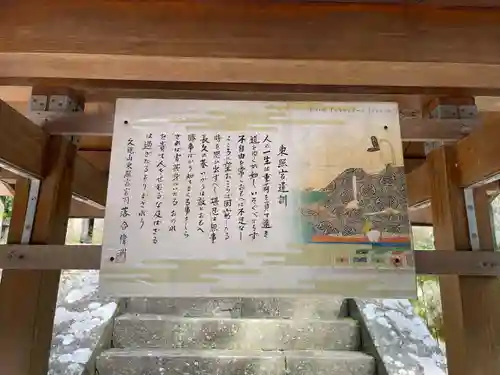 東照宮遺訓
人の一生は重荷を負て遠き
道をゆくが如しいそぐべからず
不自由を常とおもへば不足なし
こころに望おこらば困窮したる
時を思ひ出すべし堪忍は無事
長久の基いかりは敵とおもへ
勝事ばかり知りてまくる事をしら
ざれば害其身にいたるおのれ
を責て人をせむるな及ばざる
は過ぎたるよりまされり
久能山東照宮宮司 落合偉洲